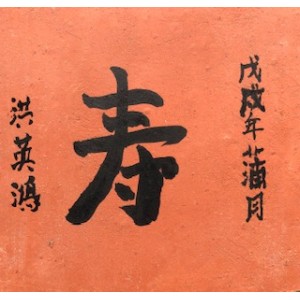 戊戌年蒲月
寿
洪英鴻